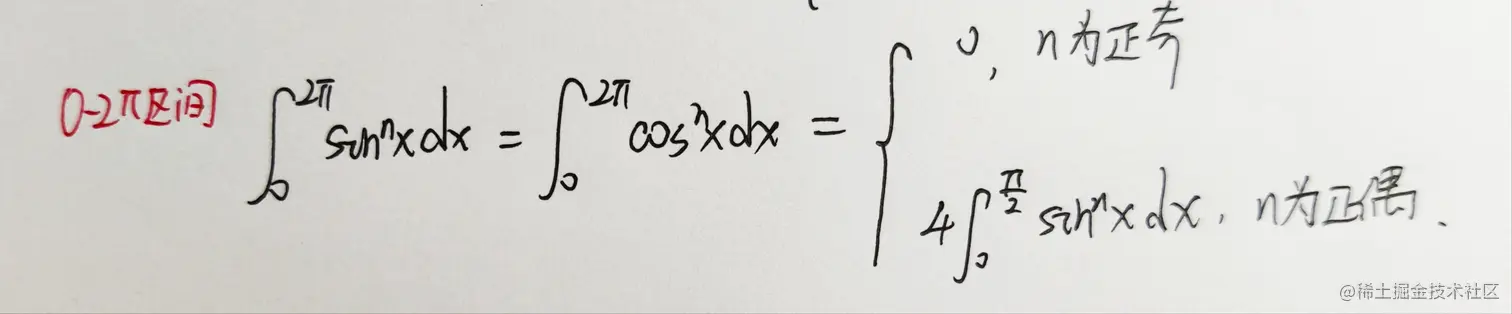 0-2π区间 ∫₀^{2π} sinⁿx dx = ∫₀^{2π} cosⁿx dx = { 0, n为正奇
4∫₀^{π/2} sinⁿx dx, n为正偶.
@稀土掘金技术社区